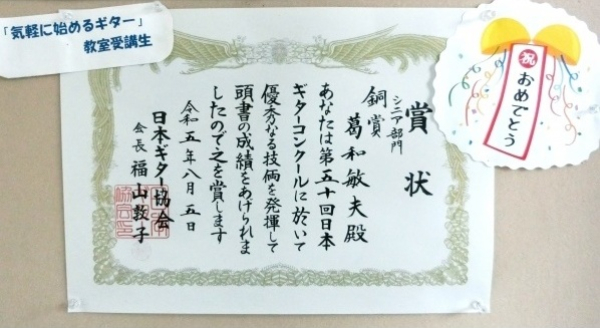 「気軽に始めるギター」
教室受講生
賞状
シニア部門
銅賞
葛和敏夫殿
あなたは第五十回日本
ギターコンクールに於いて
優秀なる技術を発揮して
頭書の成績をあげられま
したので之を賞します
令和五年八月五日
日本ギター協会
会長 福山敦子
祝
おめでとう